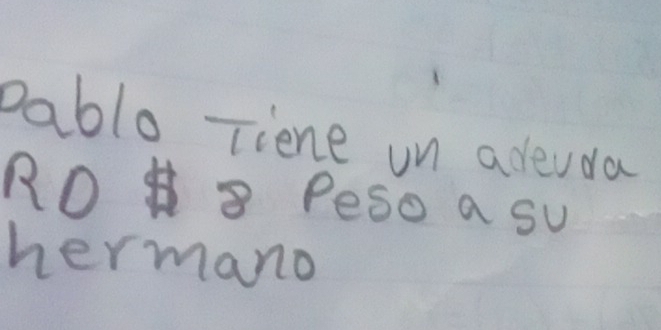 Pablo Tiene un adeuda
RD $ 8 Peso a su
hermano